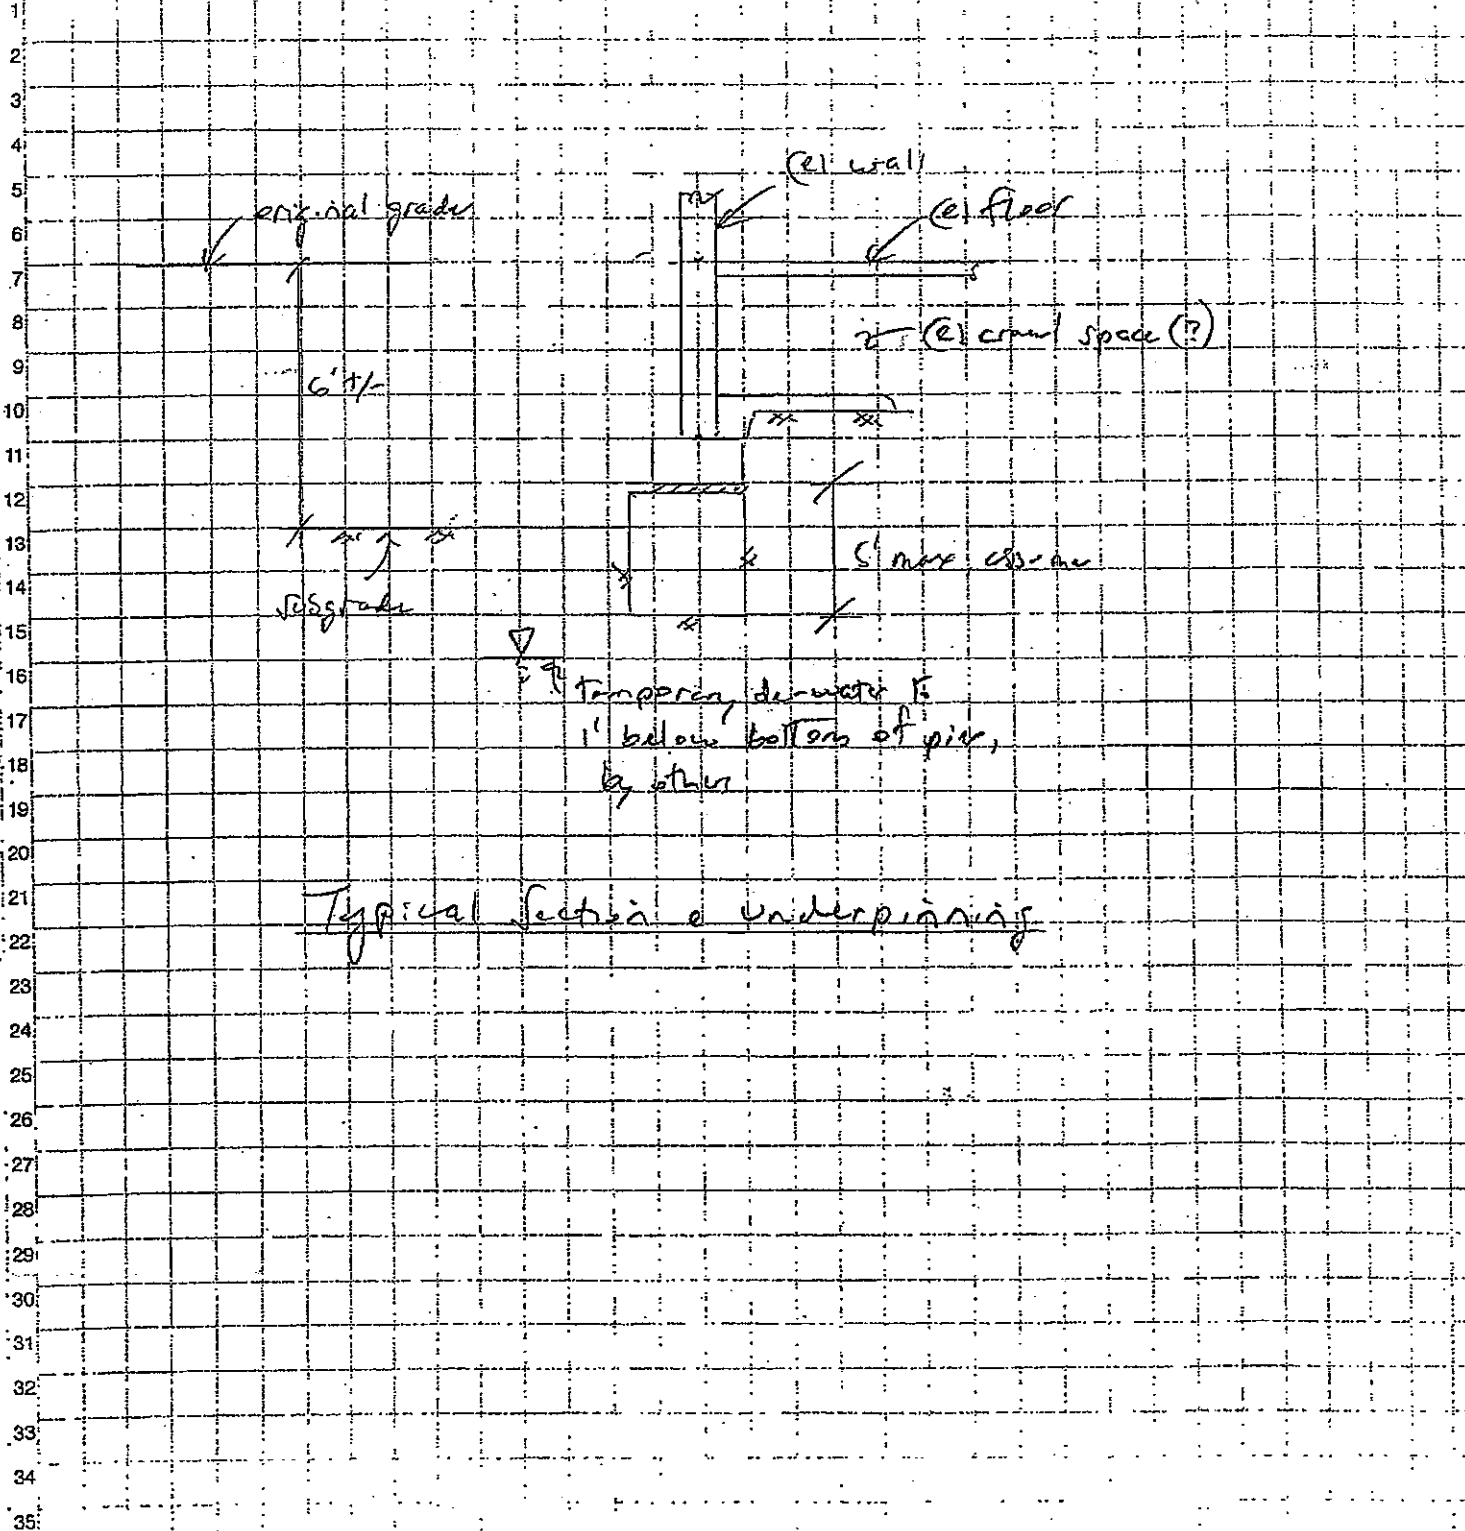 1
2
3
4
5
6
7
8
9
10
11
12
13
14
15
16
17
18
19
20
21
22
23
24
25
26
27
28
29
30
31
32
33
34
35
(e) wall
original grade
(e) floor
(e) crawl space (?)
6' +/-
5' max assume
Subgrade
temporary de-water to
1' below bottom of pier,
by others
Typical Section @ Underpinning